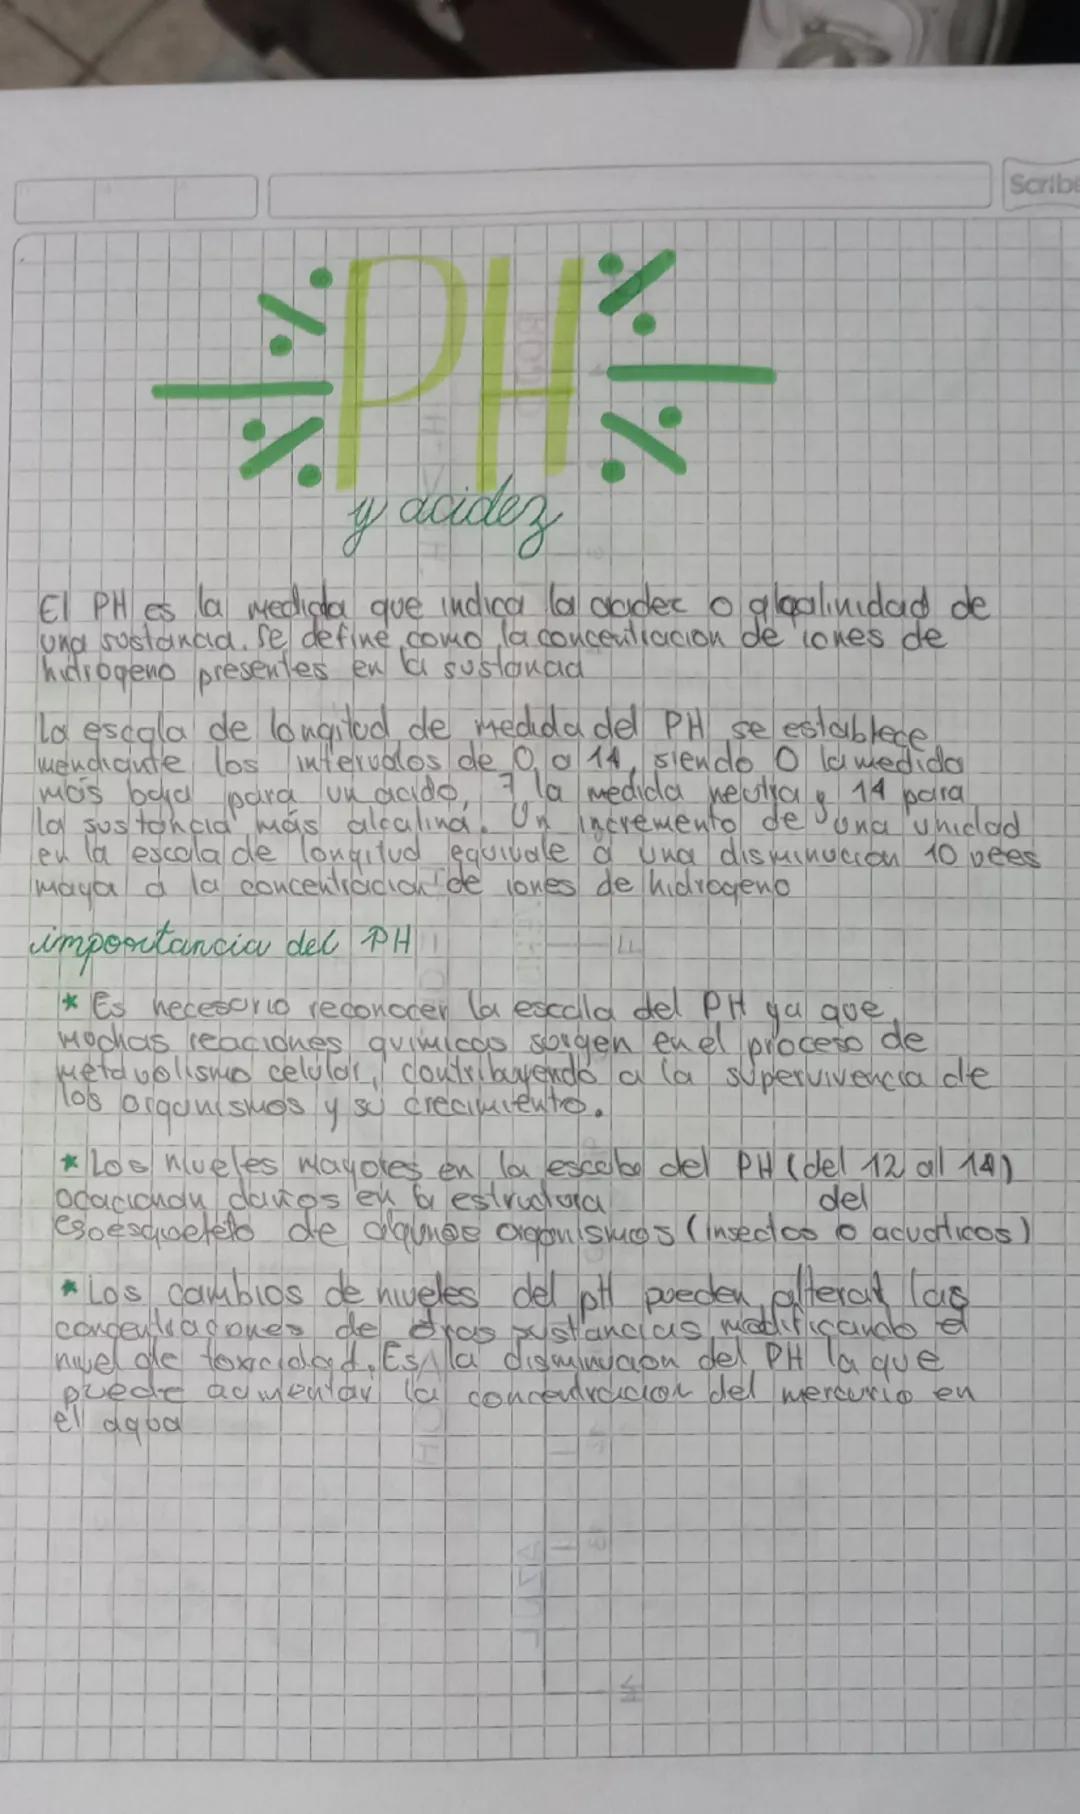 Scribe
PH
y acidez
El PH es la medida que indica la acidez o alcalinidad de
una sustancia. Se define como la concentracion de iones de
hidrogeno presentes en la sustancia
La escala de longitud de medida del PH se establece
mendiante los intervalos de 0 a 14, siendo 0 la medida
más baja para un acido, 7 la medida neutra y 14 para
la sustancia más alcalina. Un incremento de una unidad
en la escala de longitud equivale a una disminucion 10 veces
maya a la concentracion de iones de hidrogeno
importancia del PH
* Es necesario reconocer la escala del PH ya que
muchas reaciones quimicas surgen en el proceso de
metavolismo celular, contribuyendo a la supervivencia de
los organismos y su crecimiento.
* Los niveles mayores en la escala del PH (del 12 al 14)
ocacionan daños en la estructura del
esoesqueleto de algunos organismos (insectos o acuaticos)
* Los cambios de niveles del pH pueden alterar las
concentraciones de otras sustancias, modificando el
nivel de toxicidad. Es la disminucion del PH la que
puede aumentar la concentracion del mercurio en
el agua